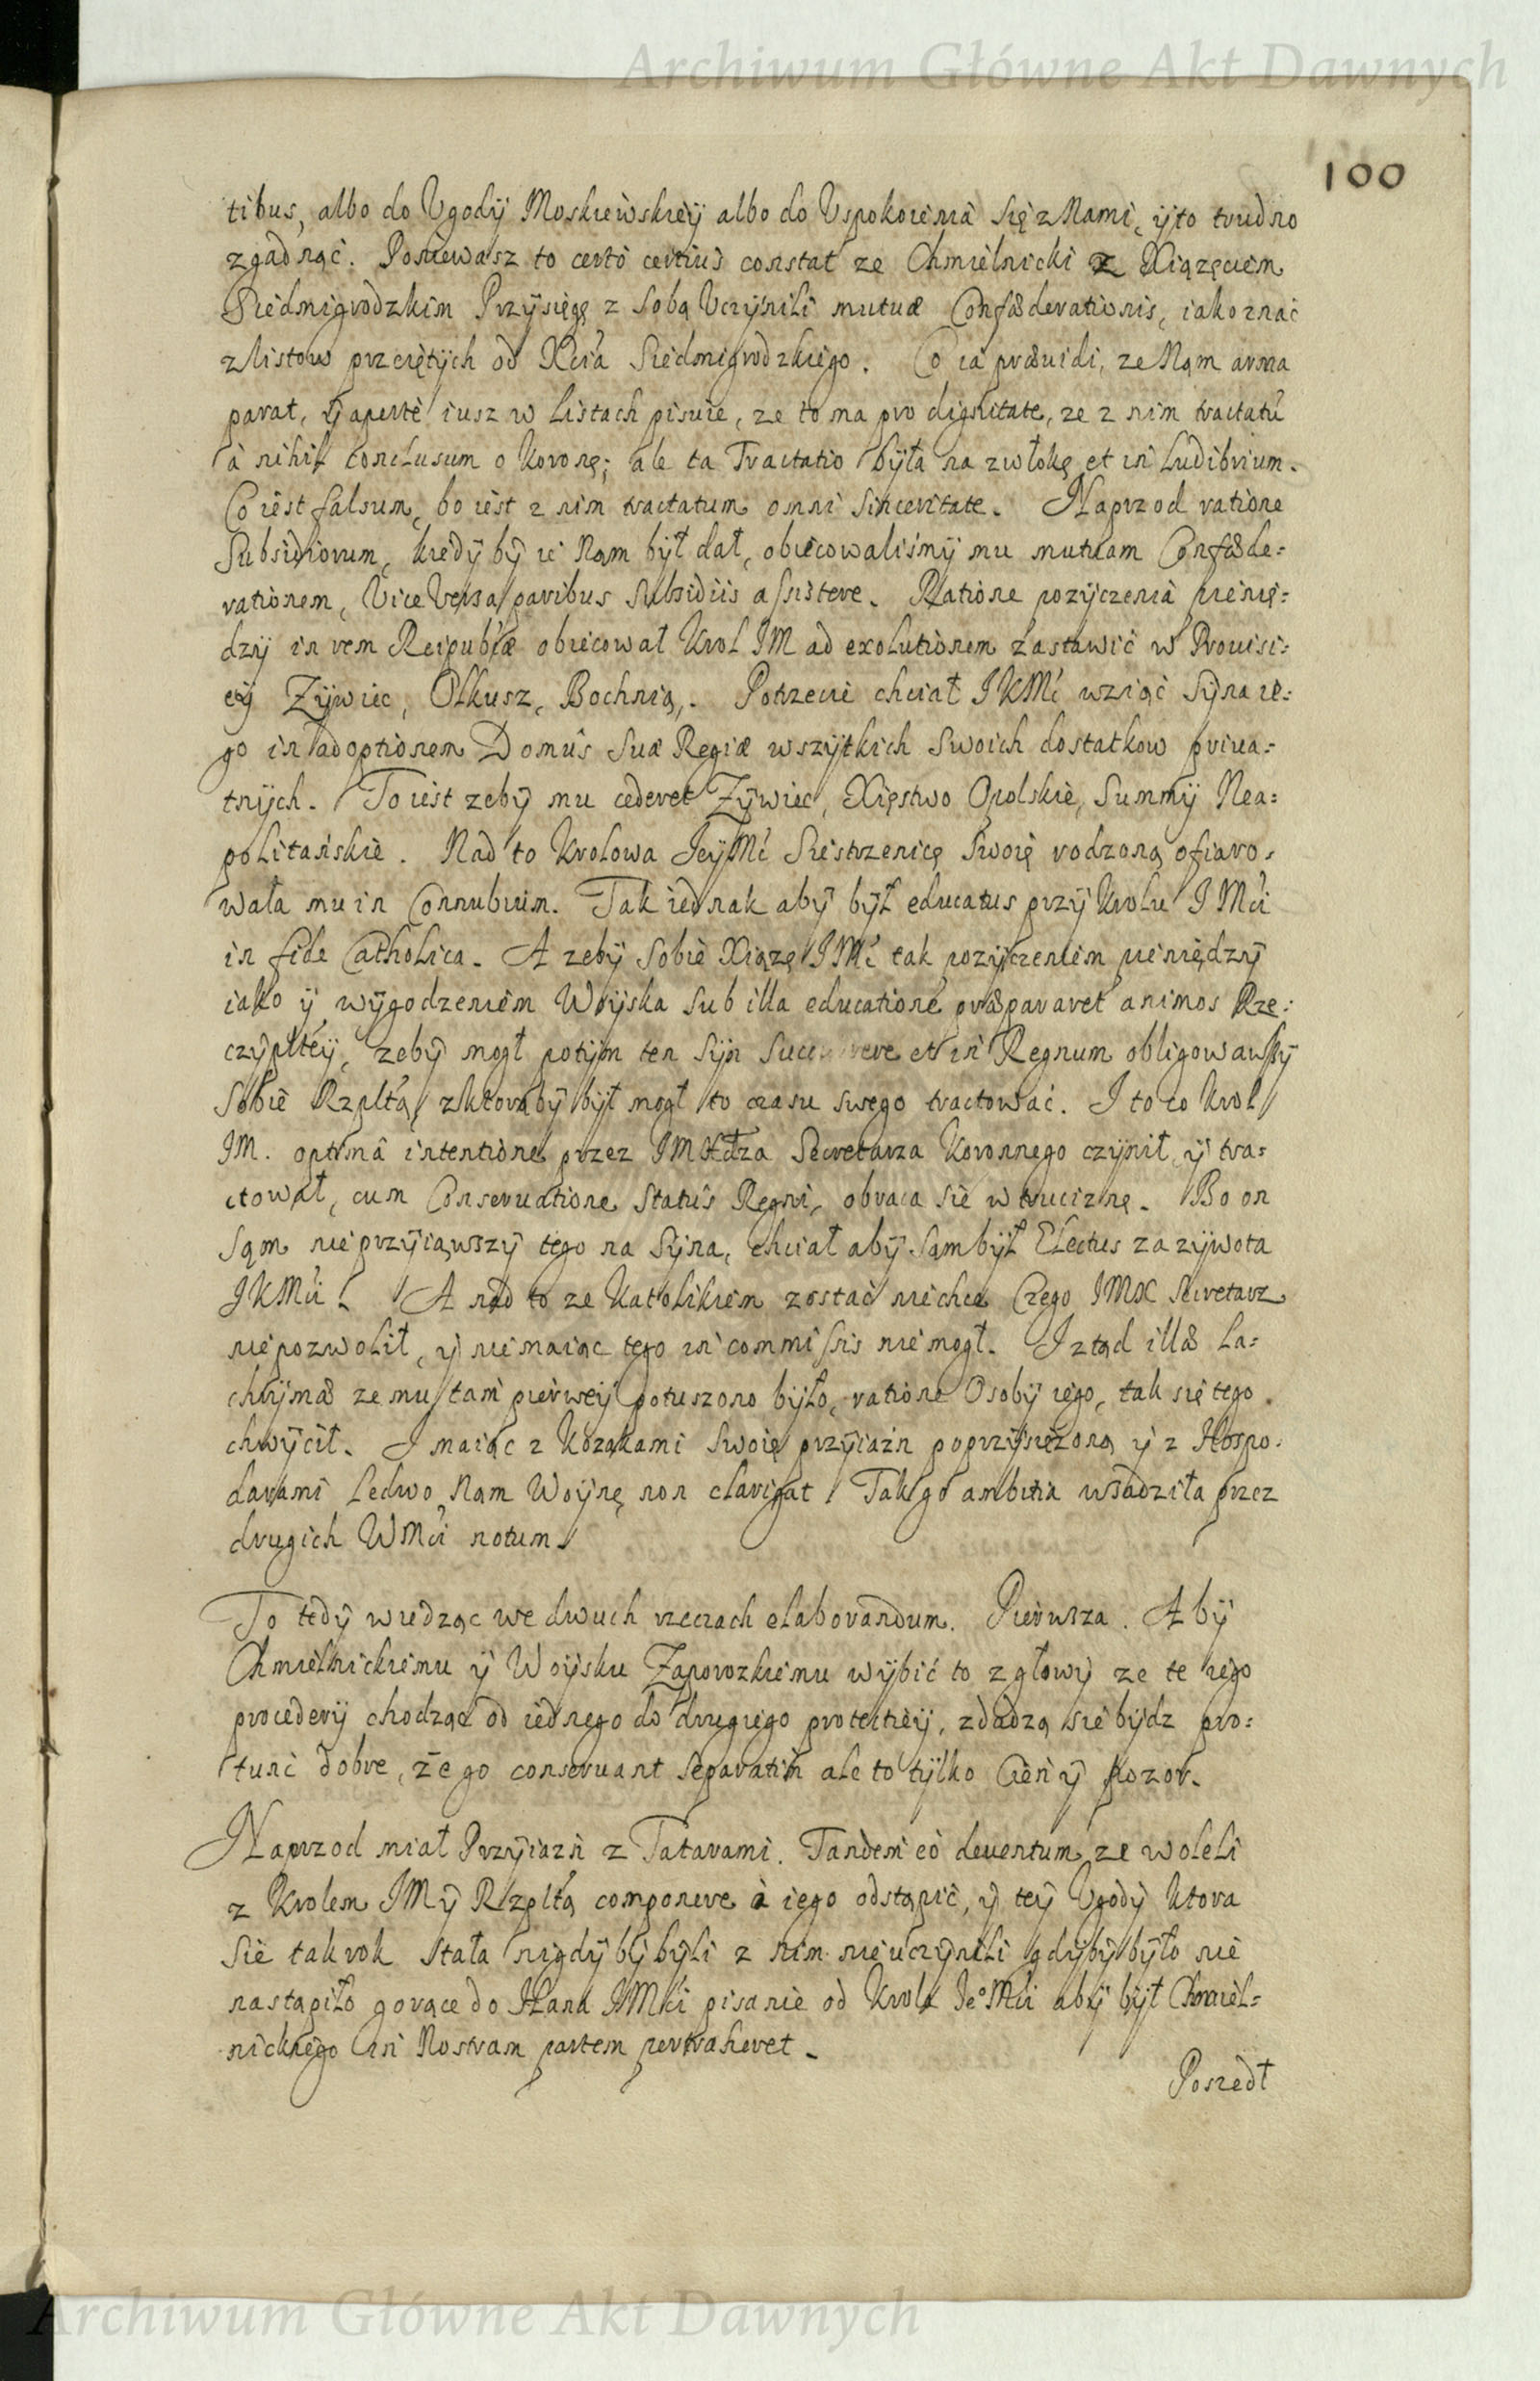 Archiwum Główne Akt Dawnych
100
tibus, albo do Vgody Moskiewskiey albo do Vspokoienia się z Nami, y to trudno
zgadnąć. Poniewasz to certo certius constat ze Chmielnicki z Xiązęciem
Siedmigrodzkim Przysięgę z sobą Vczynili mutuæ Confœderationis, iako znać
z listow przeiętych od Xcia Siedmigrodzkiego. Co ia præuidi, ze Nąm arma
parat, y aperte iusz w listach pisuie, ze to ma pro dignitate, ze z nim tractatũ
à nihil conclusum o Koronę; ale ta Tractatio była na zwłokę et in ludibrium.
Co iest falsum, bo iest z nim tractatum omni sinceritate. Naprzod ratione
Subsidiorum, kiedy by ie Nąm był dał, obiecowaliśmy mu mutuam Confœde=
rationem, Vice Versa paribus subsidiis assistere. Ratione pozyczenia pienię=
dzy in rem Reipubcæ obiecował Krol IM ad exolutionem zastawić w Prouisi=
ey Zywiec, Olkusz, Bochnią. Potrzecie chciał IKMć wziąć Syna ie=
go in adoptionem Domûs Suæ Regiæ wszytkich swoich dostatkow priua=
tnych. To iest zeby mu cederet Zywiec, Xięstwo Opolskie, Summy Nea=
politańskie. Nad to Krolowa JeyMć Siestrzenicę Swoię rodzoną ofiaro=
wała mu in Connubium. Tak iednak aby był educatus przy Krolu IMci
in fide Catholica. A zeby sobie Xiązę IMć tak pozyczeniem pieniędzy
iako y wygodzeniem Woyska sub illa educatione præpararet animos Rze=
czypltey, zeby mogł potym ten Syn et in Regnum obligowawszy
sobie Rzpltą, z ktorąby był mogł to czasu swego tractować. I to co Krol
IM. optimâ intentione przez IMXdza Secretarza Koronnego czynił, y tra=
ctował, cum Conseruatione Statûs Regni, obraca sie w truciznę. Bo on
sąm nieprzyiąwszy tego na Syna, chciał aby sąm był Electus za zywota
IKMci. A nad to ze Katolikiem zostać niechce Czego IMX Secretarz
niepozwolił, y niemaiąc tego in commissis niemogł. I ztąd illæ la=
chrymæ ze mu tam pierwey potuszono było, ratione Osoby iego, tak się tego
chwycił. I maiąc z Kozakami swoię przyiaźn poprzysiężoną y z Hospo=
darami ledwo Nąm Woynę non clarigat. Tak go ambitia wsadziła przez
drugich WMci notum.
To tedy wiedząc we dwuch rzeczach elaborandum. Pierwsza. Aby
Chmielnickiemu y Woysku Zaporozkiemu wybić to z głowy ze te iego
procedery chodząc od iednego do drugiego protectiey, zdadzą sie bydz pro=
tunc dobre, że go conseruant separatim ale to tylko Cień y pozor.
Naprzod miał Przyiaźń z Tatarami. Tandem eò deuentum, ze woleli
z Krolem IM y Rzpltą componere à iego odstąpić, y tey Vgody ktora
sie tak rok stała nigdy by byli z nim nie uczynili gdyby było nie
nastąpiło gorące do Hana IMci pisanie od Krola JeoMci aby był Chmiel=
nickiego in Nostram partem pertraheret.
Poszedł
Archiwum Główne Akt Dawnych